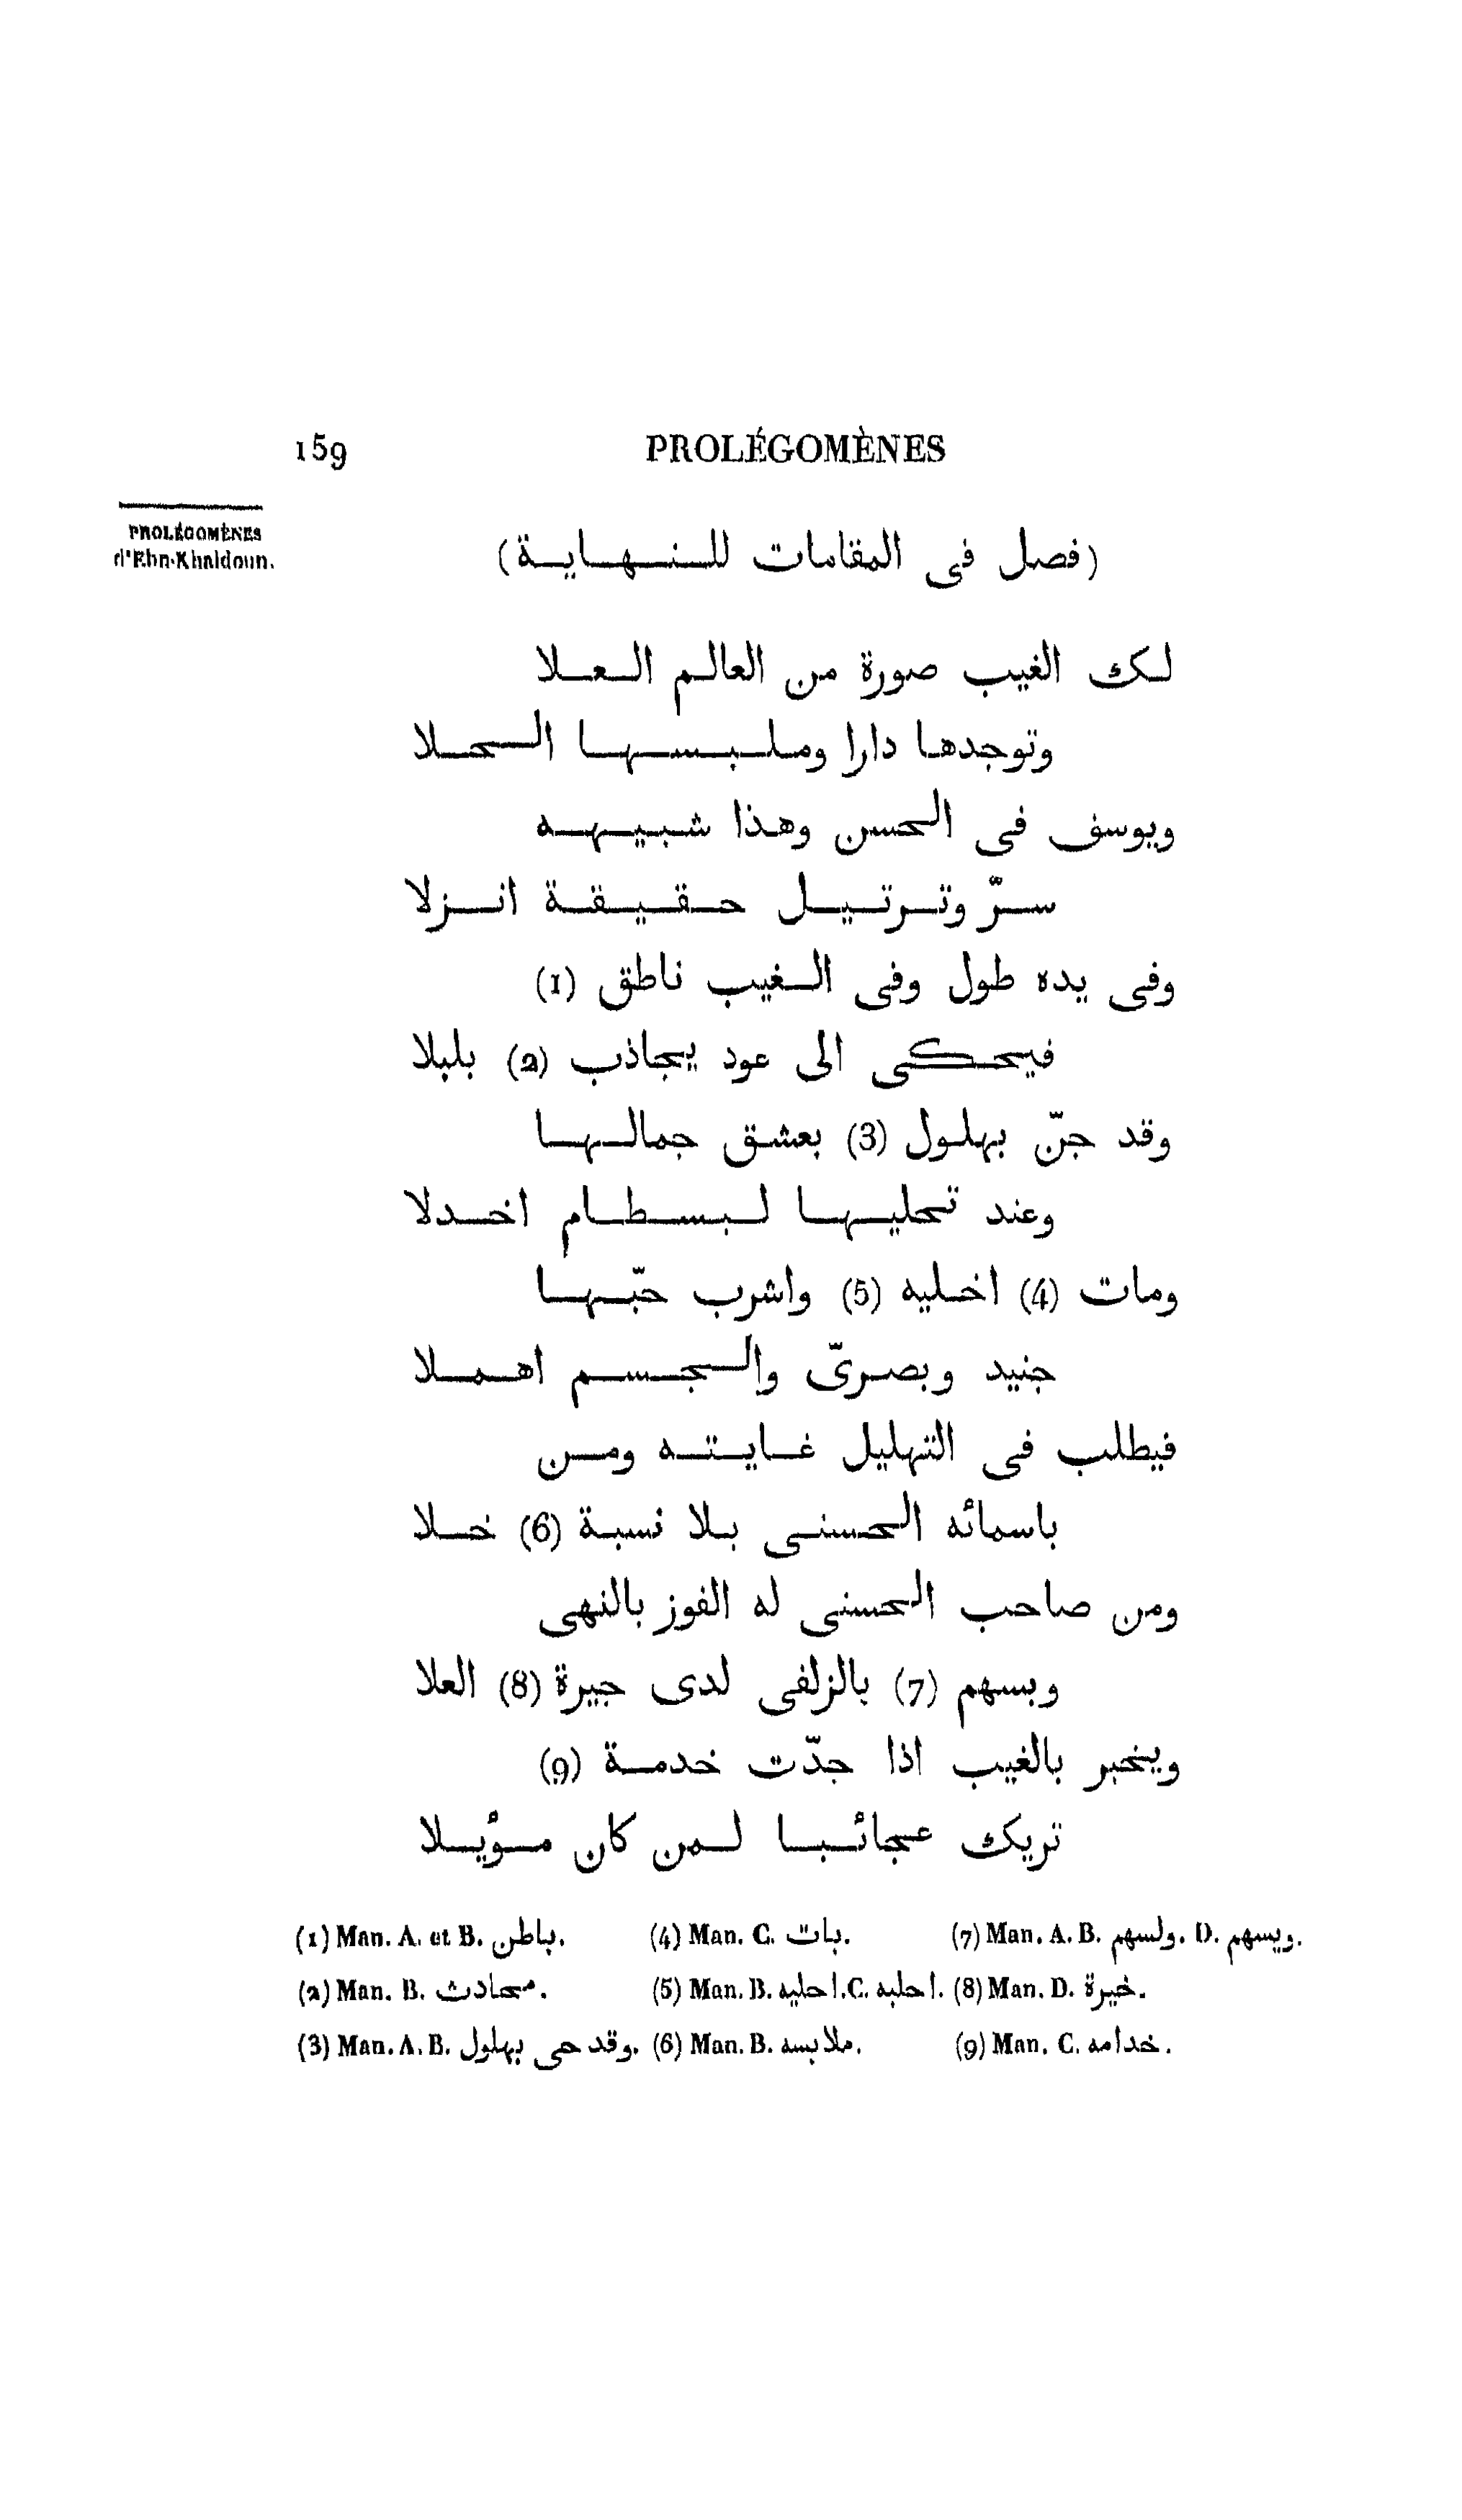 159 PROLÉGOMÈNES
PROLÉGOMÈNES
d'Ebn-Khaldoun.
(فصل فى المقامات للنهاية)
لك الغيب صورة من العالم العلا
وتوجدها دارا وملبسها الحلا
ويوسف فى الحسن وهذا شبيهه
سرّ وترتيل حقيقة انزلا
وفى يده طول وفى الغيب ناطق (1)
فيحكى الى عود يجاذب (2) بلبلا
وقد جنّ بهلول (3) بعشق جمالها
وعند تحليها لبسطام اخدلا
ومات (4) اخليه (5) واشرب حبّها
جنيد وبصرىّ والجسم اهملا
فيطلب فى التهليل غايته ومن
باسمائه الحسنى بلا نسبة (6) خلا
ومن صاحب الحسنى له الفوز بالنهى
وبسهم (7) بالزلفى لدى جيرة (8) العلا
ويخبر بالغيب اذا جدّت خدمة (9)
تريك عجائبا لمن كان مؤيلا
(1) Man. A. et B. باطن.
(2) Man. B. محادث.
(3) Man. A. B. وقد حى بهلول.
(4) Man. C. بات.
(5) Man. B. احليه. C. احلبه.
(6) Man. B. ملابسه.
(7) Man. A. B. ولسهم. D. ويسهم.
(8) Man. D. خيرة.
(9) Man. C. خدامه.